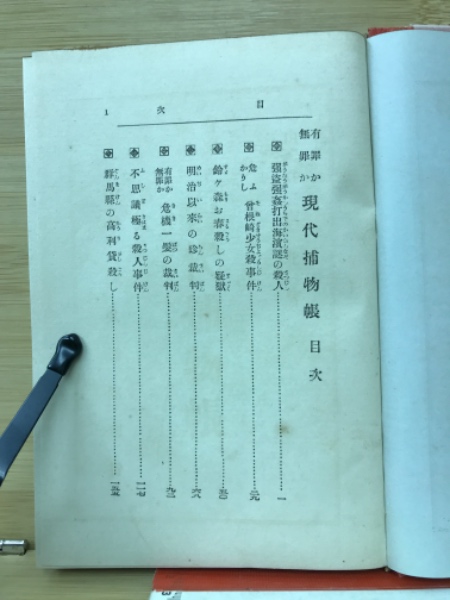 目次 1
有罪か
無罪か 現代捕物帳 目次
強盗强姦打出海濱謎の殺人……一
危ふかりし 曾根崎少女殺事件……二九
鈴ケ森お春殺しの疑獄……五〇
明治以來の珍裁判……六八
有罪か無罪か 危機一髪の裁判……九二
不思議極る殺人事件……一一七
群馬縣の高利貸殺し……一五五